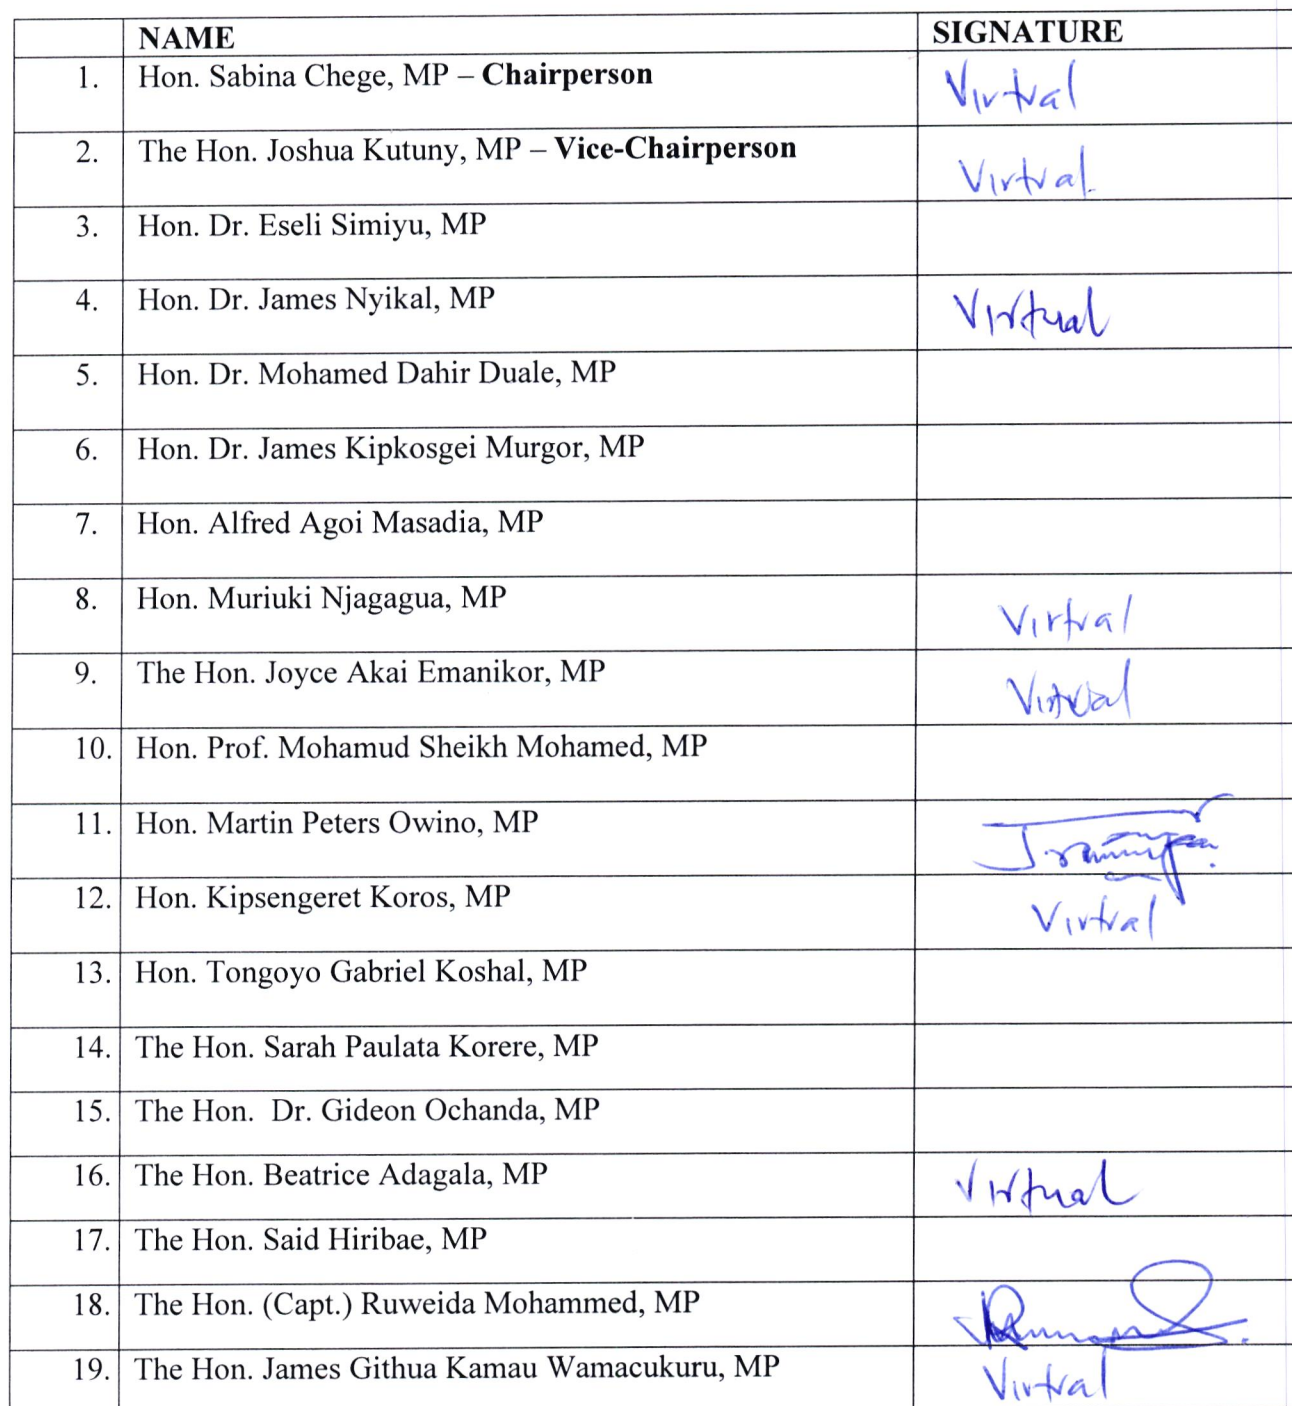 NAME SIGNATURE
1. Hon. Sabina Chege, MP – Chairperson Virtual
2. The Hon. Joshua Kutuny, MP – Vice-Chairperson Virtual.
3. Hon. Dr. Eseli Simiyu, MP
4. Hon. Dr. James Nyikal, MP Virtual
5. Hon. Dr. Mohamed Dahir Duale, MP
6. Hon. Dr. James Kipkosgei Murgor, MP
7. Hon. Alfred Agoi Masadia, MP
8. Hon. Muriuki Njagagua, MP Virtual
9. The Hon. Joyce Akai Emanikor, MP Virtual
10. Hon. Prof. Mohamud Sheikh Mohamed, MP
11. Hon. Martin Peters Owino, MP
12. Hon. Kipsengeret Koros, MP Virtual
13. Hon. Tongoyo Gabriel Koshal, MP
14. The Hon. Sarah Paulata Korere, MP
15. The Hon. Dr. Gideon Ochanda, MP
16. The Hon. Beatrice Adagala, MP Virtual
17. The Hon. Said Hiribae, MP
18. The Hon. (Capt.) Ruweida Mohammed, MP
19. The Hon. James Githua Kamau Wamacukuru, MP Virtual